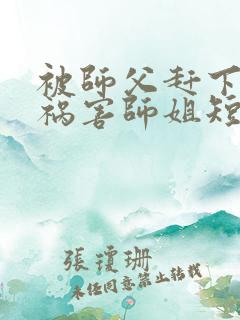 被師父赶下
祸害師姐短
張瓊珊
未经同意禁止转载